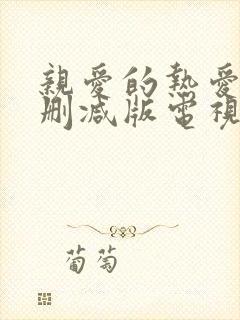 親愛的熱愛
刪減版電視
葡萄